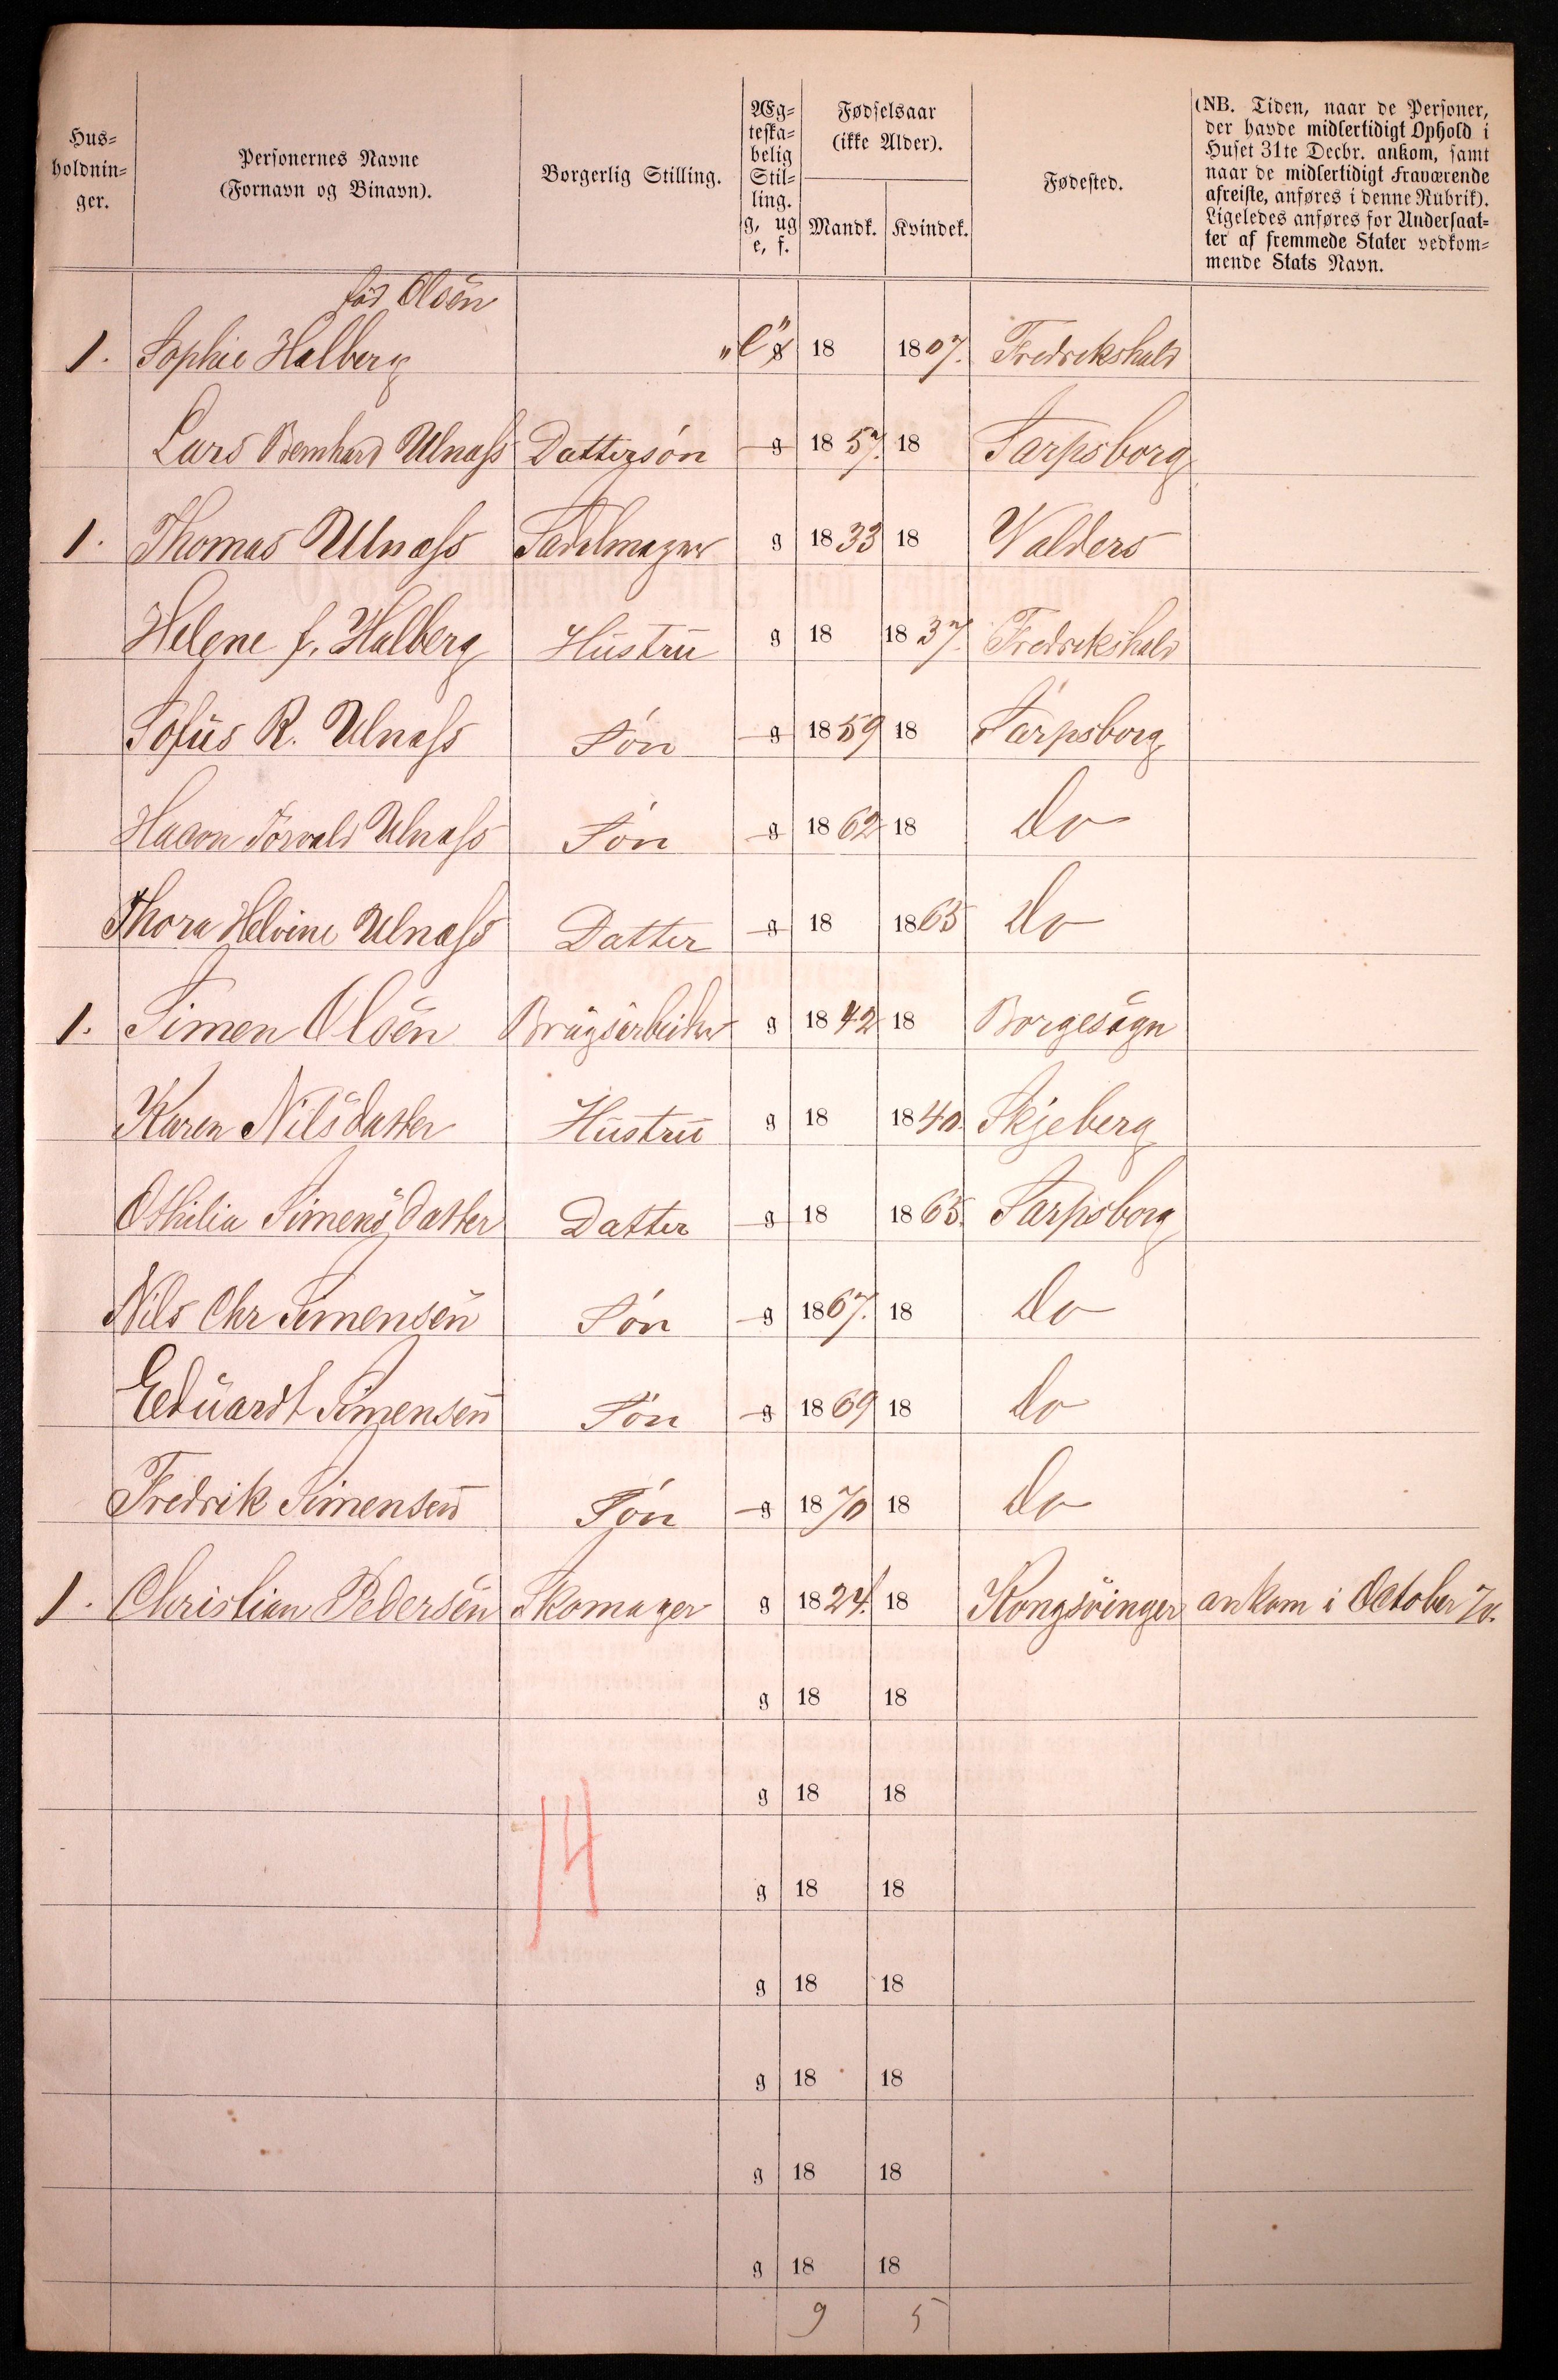 Hus-
holdnin-
ger.
Personernes Navne
(Fornavn og Binavn).
Borgerlig Stilling.
Æg-
teska-
belig
Stil-
ling.
g, ug
e, f.
Fødselsaar
(ikke Alder).
Mandk. Kvindek.
Fødested.
(NB. Tiden, naar de Personer,
der havde midlertidigt Ophold i
Huset 31te Decbr. ankom, samt
naar de midlertidigt Fraværende
afreiste, anføres i denne Rubrik).
Ligeledes anføres for Undersaat-
ter af fremmede Stater vedkom-
mende Stats Navn.
fød Olsen
1. Sophie Halberg "e" g 18 1807. Fredrikshald
Lars Bernhard Ulnass Dattersón g 1857. 18 Sarpsborg
1. Thomas Ulnass Sadelmager g 1833 18 Valders
Helene f. Halberg Hustru g 18 1837. Fredrikshald
Sofus R. Ulnass Són g 1859 18 Sarpsborg
Hacon Torvald Ulnass Són g 1862 18 Do
Thora Helvine Ulnass Datter g 18 1865 Do
1. Simen Olsen Brugsarbeider g 1842 18 Borgesogn
Karen Nilsdatter Hustru g 18 1840. Skjeberg
Othilia Simensdatter Datter g 18 1865. Sarpsborg
Nils Chr Simensen Són g 1867. 18 Do
Eduardt Simensen Són g 1869 18 Do
Fredrik Simensen Són g 1870 18 Do
1. Christian Pedersen Skomager g 1824. 18 Kongsvinger ankom i October 70.
g 18 18
g 18 18
14
g 18 18
g 18 18
g 18 18
g 18 18
g 18 18
9 5